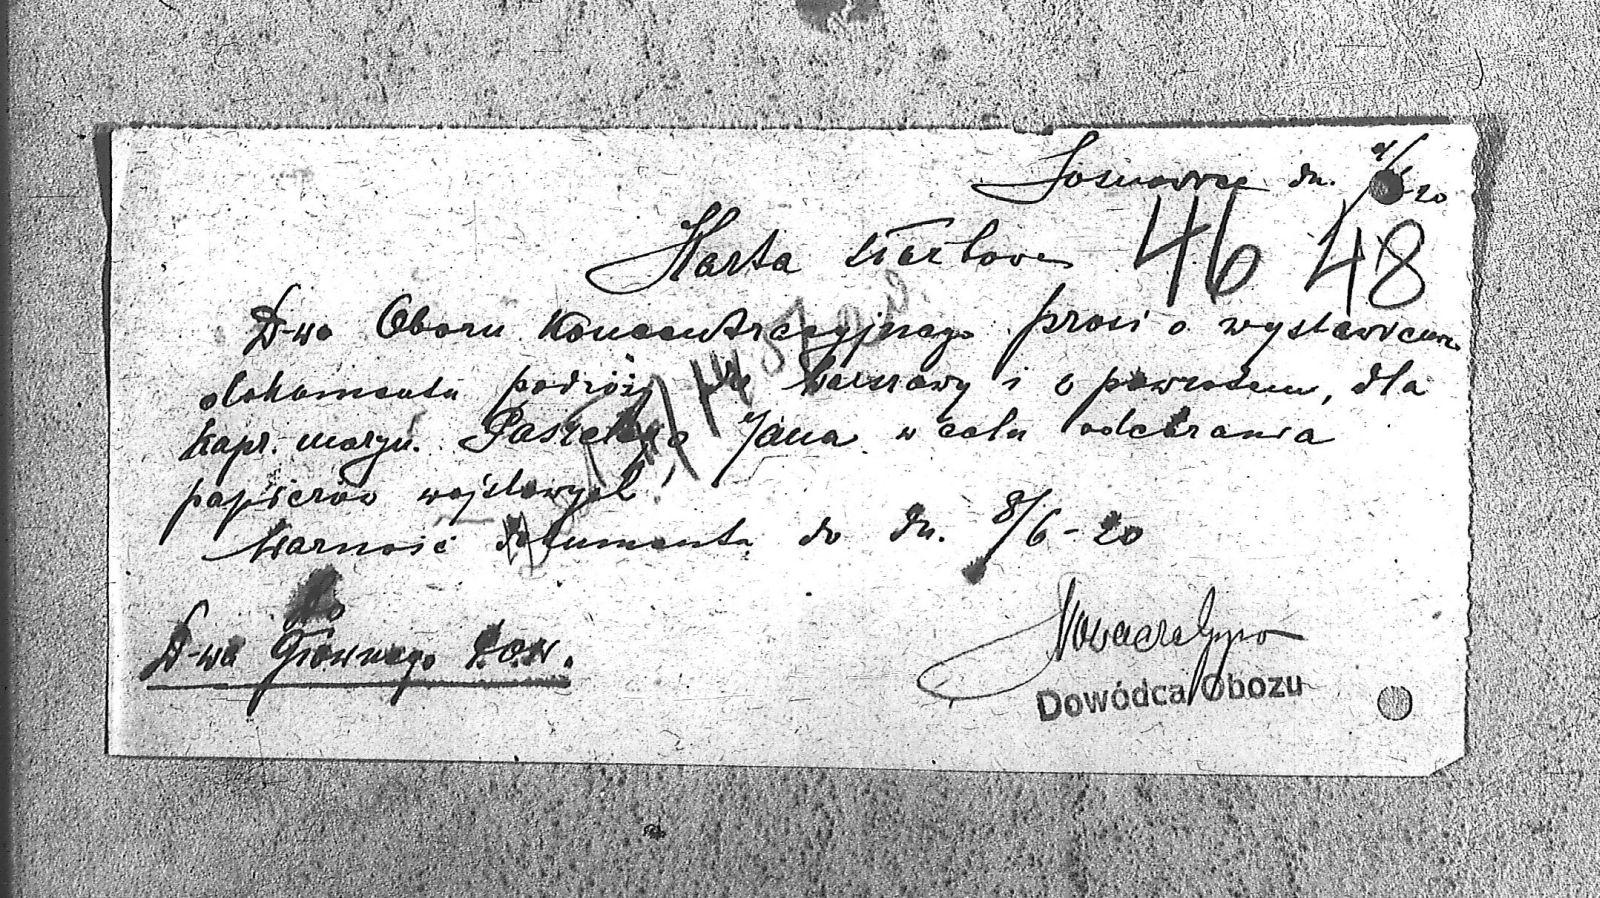 Sosnowce dn. /6 20
Karta służbowa 46 48
D-wo Obozu Koncentracyjnego prosi o wystawienie
dokumentu podróży do Warszawy i z powrotem, dla
kapr. maryn. Jana w celu odebrania
papierów wojskowych
Warność dokumentu do dn. 8/6-20
Do
D-wa Głównego P.O.W.
Dowódca Obozu